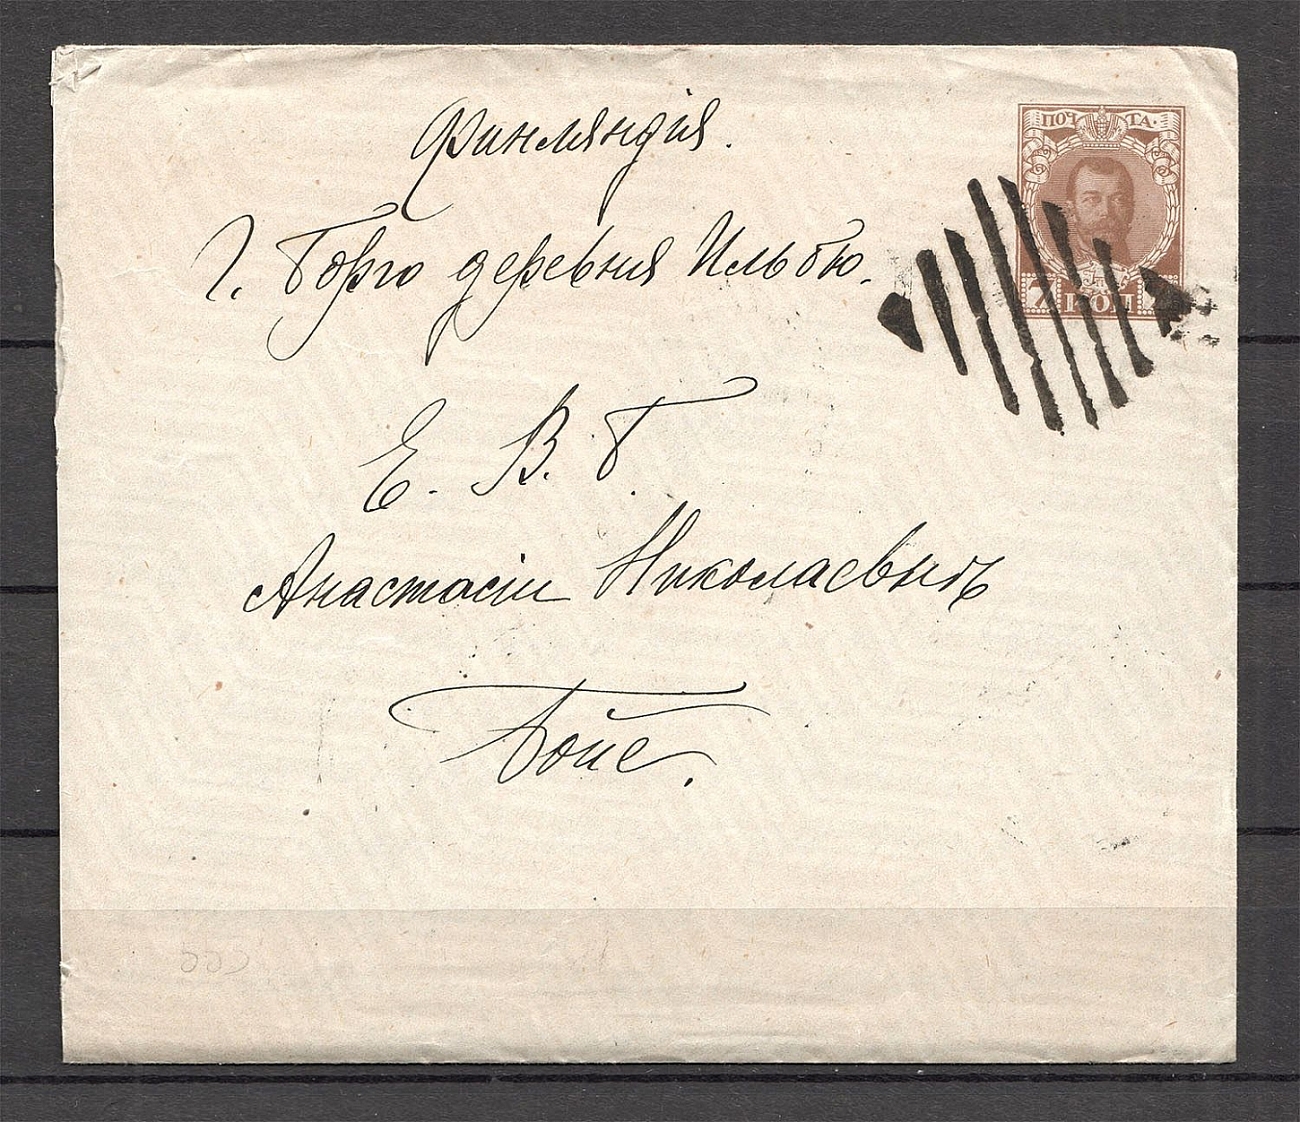 ПОЧТА
Финляндія.
г. Борго деревня Ильбю.
7 КОП 7
Е. В. Б.
Анастасіи Николаевнѣ
Бойе.